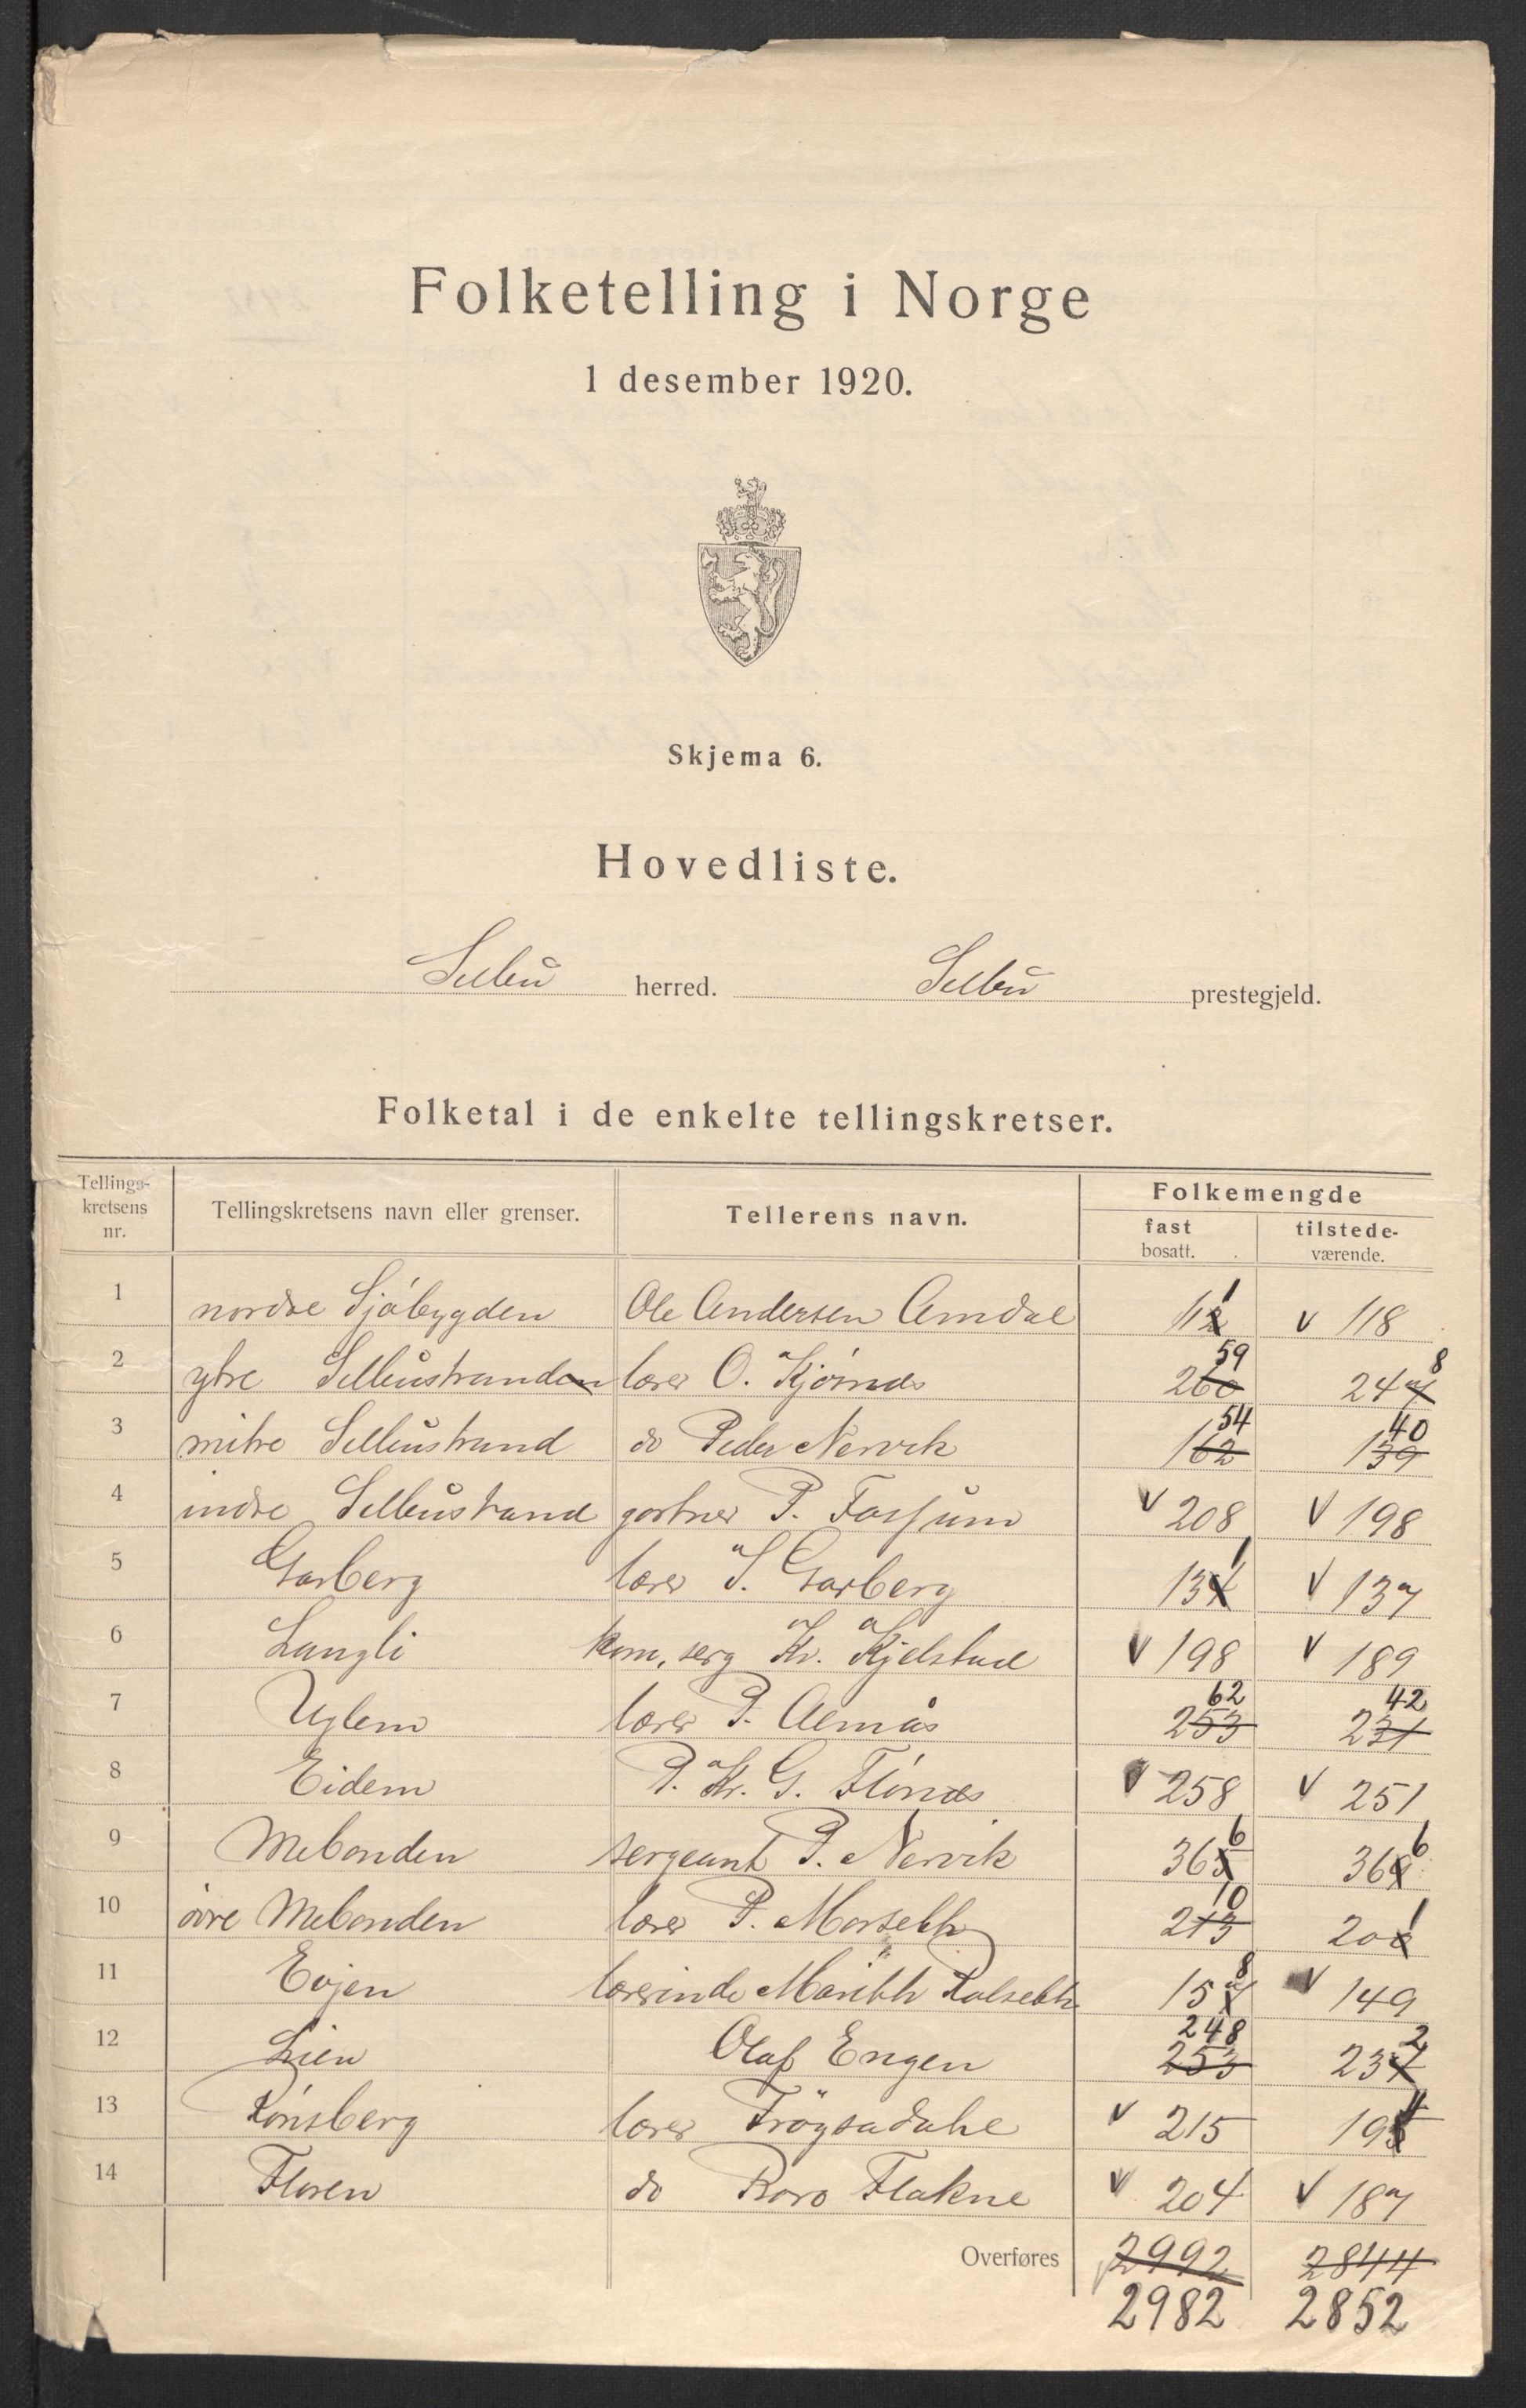 Folketelling i Norge
1 desember 1920.
Skjema 6.
Hovedliste.
Selbu herred. Selbu prestegjeld.
Folketal i de enkelte tellingskretser.
Tellings-kretsens nr. Tellingskretsens navn eller grenser. Tellerens navn. Folkemengde
fast bosatt. tilstede-værende.
1 nordre Sjóbygden Ole Andersen Amdal 112 1 v 118
2 ytre Selbustranden lærer O. Kjósnæs 260 59 247 8
3 mitre Selbustrand do Peder Nervik 162 54 139 40
4 indre Selbustrand gartner P. Fossum v 208 v 198
5 Garberg lærer J. Garberg 134 1 v 137
6 Langli kom. serg Kr. Kjelstad v 198 v 189
7 Uglem lærer P. Almås 253 62 231 42
8 Eidem P. Kr. G. Flónæs v 258 v 251
9 Mebonden sergeant P. Nervik 365 6 368 6
10 óvre Mebonden lærer P. Morseth 213 10 200 1
11 Evjen lærerinde Marith Rolseth 157 8 v 149
12 Lien Olaf Engen 253 248 237 2
13 Rónsberg lærer Tróysadahl v 215 195 4
14 Floren do Boro Flakne v 204 v 187
Overføres 2992 2844
2982 2852